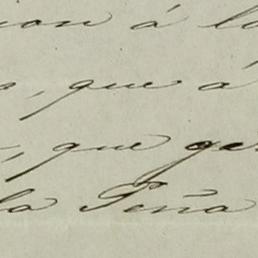 á la
, que á
, que
la Peña